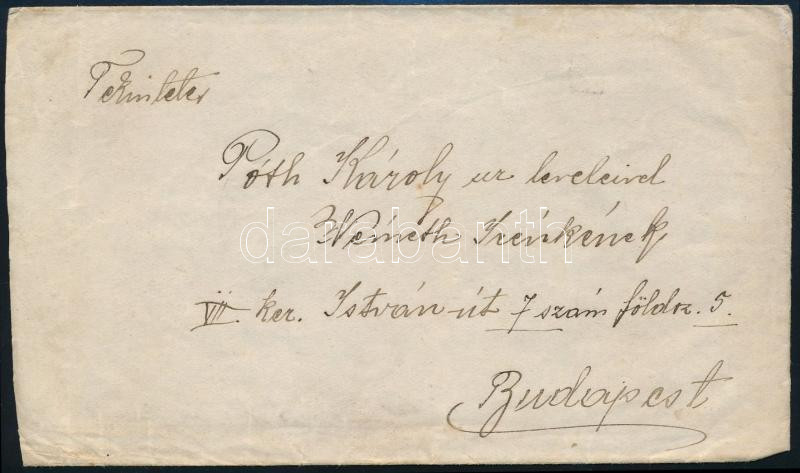 Tekintetes
Póth Károly ur leveleivel
Németh Irénkének
VII. ker. István-út 7 szám földsz. 5.
Budapest
darabanth